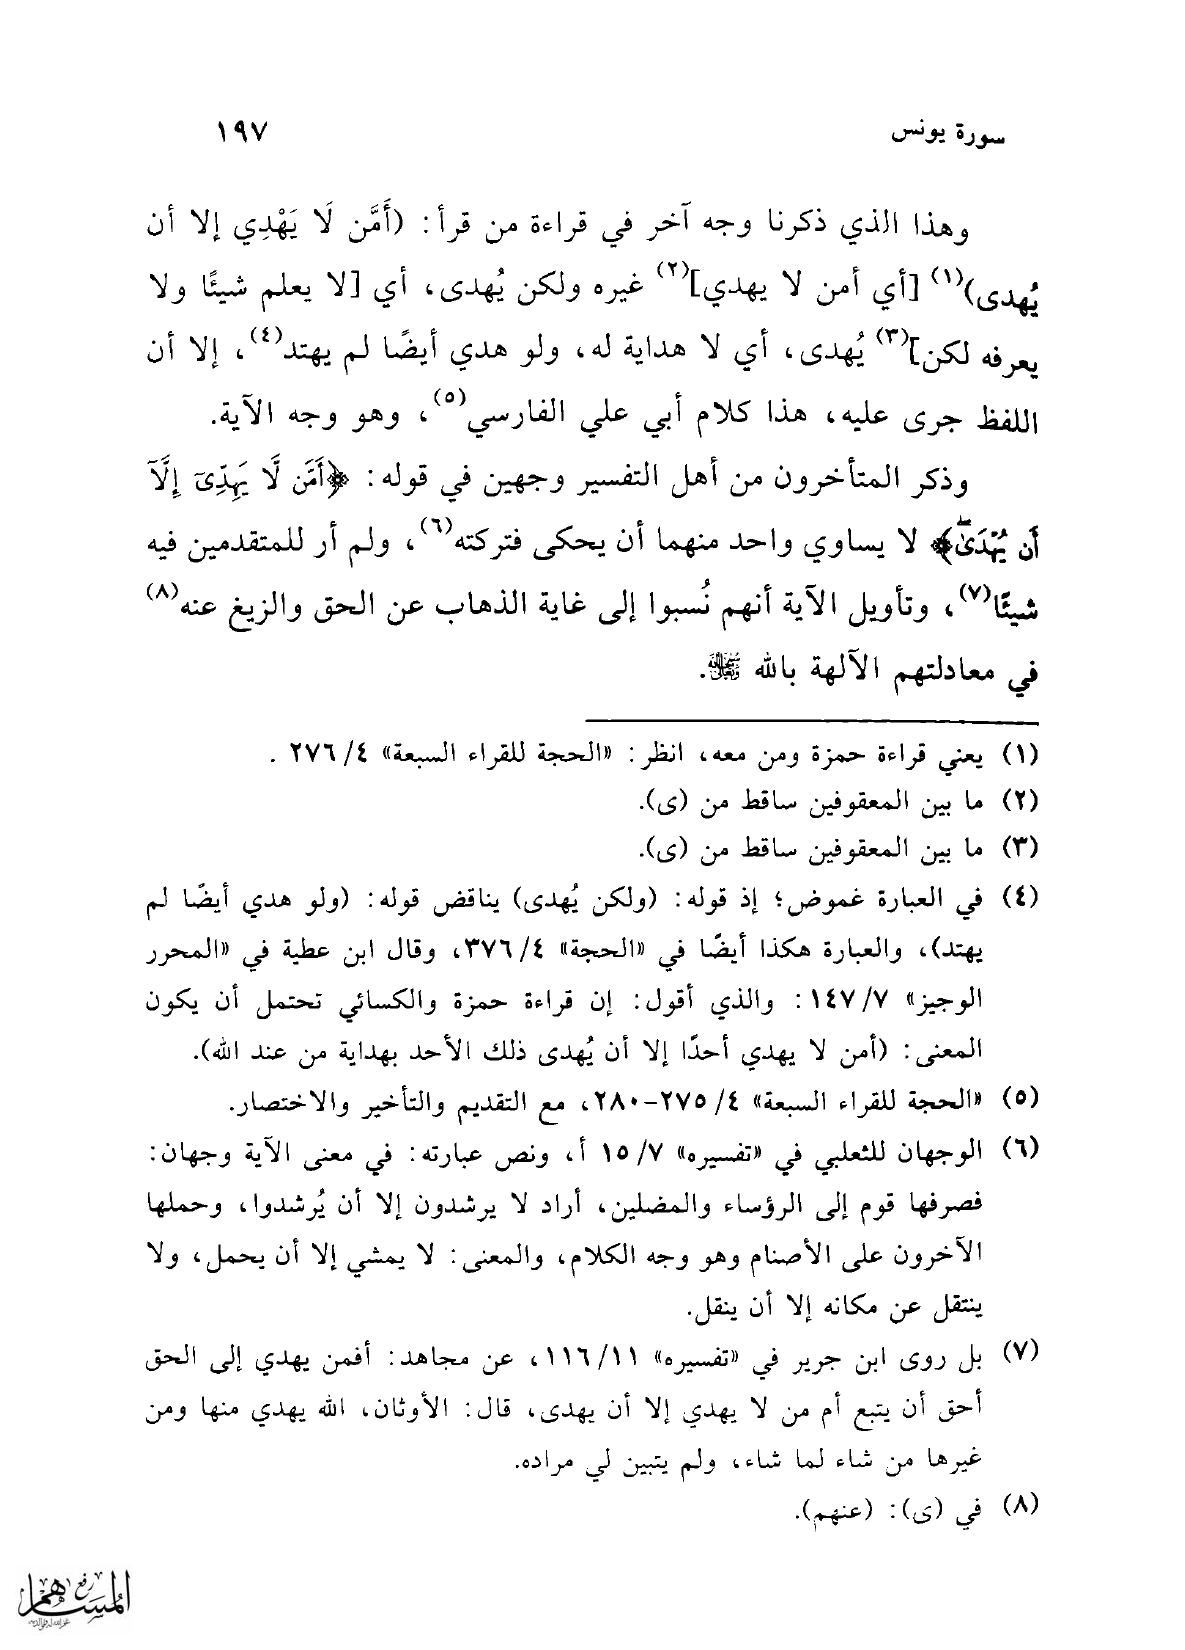 سورة يونس ١٩٧
وهذا الذي ذكرنا وجه آخر في قراءة من قرأ: (أَمَّن لَا يَهْدِي إلا أن
يُهدى)(١) [أي أمن لا يهدي](٢) غيره ولكن يُهدى، أي [لا يعلم شيئًا ولا
يعرفه لكن](٣) يُهدى، أي لا هداية له، ولو هدي أيضًا لم يهتد(٤)، إلا أن
اللفظ جرى عليه، هذا كلام أبي علي الفارسي(٥)، وهو وجه الآية.
وذكر المتأخرون من أهل التفسير وجهين في قوله: ﴿أَمَّن لَّا يَهِدِّىٓ إِلَّآ
أَن يُهْدَىٰۖ﴾ لا يساوي واحد منهما أن يحكى فتركته(٦)، ولم أر للمتقدمين فيه
شيئًا(٧)، وتأويل الآية أنهم نُسبوا إلى غاية الذهاب عن الحق والزيغ عنه(٨)
في معادلتهم الآلهة بالله .
(١) يعني قراءة حمزة ومن معه، انظر: «الحجة للقراء السبعة» ٤/ ٢٧٦ .
(٢) ما بين المعقوفين ساقط من (ى).
(٣) ما بين المعقوفين ساقط من (ى).
(٤) في العبارة غموض؛ إذ قوله: (ولكن يُهدى) يناقض قوله: (ولو هدي أيضًا لم
يهتد)، والعبارة هكذا أيضًا في «الحجة» ٤/ ٣٧٦، وقال ابن عطية في «المحرر
الوجيز» ٧/ ١٤٧: والذي أقول: إن قراءة حمزة والكسائي تحتمل أن يكون
المعنى: (أمن لا يهدي أحدًا إلا أن يُهدى ذلك الأحد بهداية من عند الله).
(٥) «الحجة للقراء السبعة» ٤/ ٢٧٥-٢٨٠، مع التقديم والتأخير والاختصار.
(٦) الوجهان للثعلبي في «تفسيره» ٧/ ١٥ أ، ونص عبارته: في معنى الآية وجهان:
فصرفها قوم إلى الرؤساء والمضلين، أراد لا يرشدون إلا أن يُرشدوا، وحملها
الآخرون على الأصنام وهو وجه الكلام، والمعنى: لا يمشي إلا أن يحمل، ولا
ينتقل عن مكانه إلا أن ينقل.
(٧) بل روى ابن جرير في «تفسيره» ١١/ ١١٦، عن مجاهد: أفمن يهدي إلى الحق
أحق أن يتبع أم من لا يهدي إلا أن يهدى، قال: الأوثان، الله يهدي منها ومن
غيرها من شاء لما شاء، ولم يتبين لي مراده.
(٨) في (ى): (عنهم).